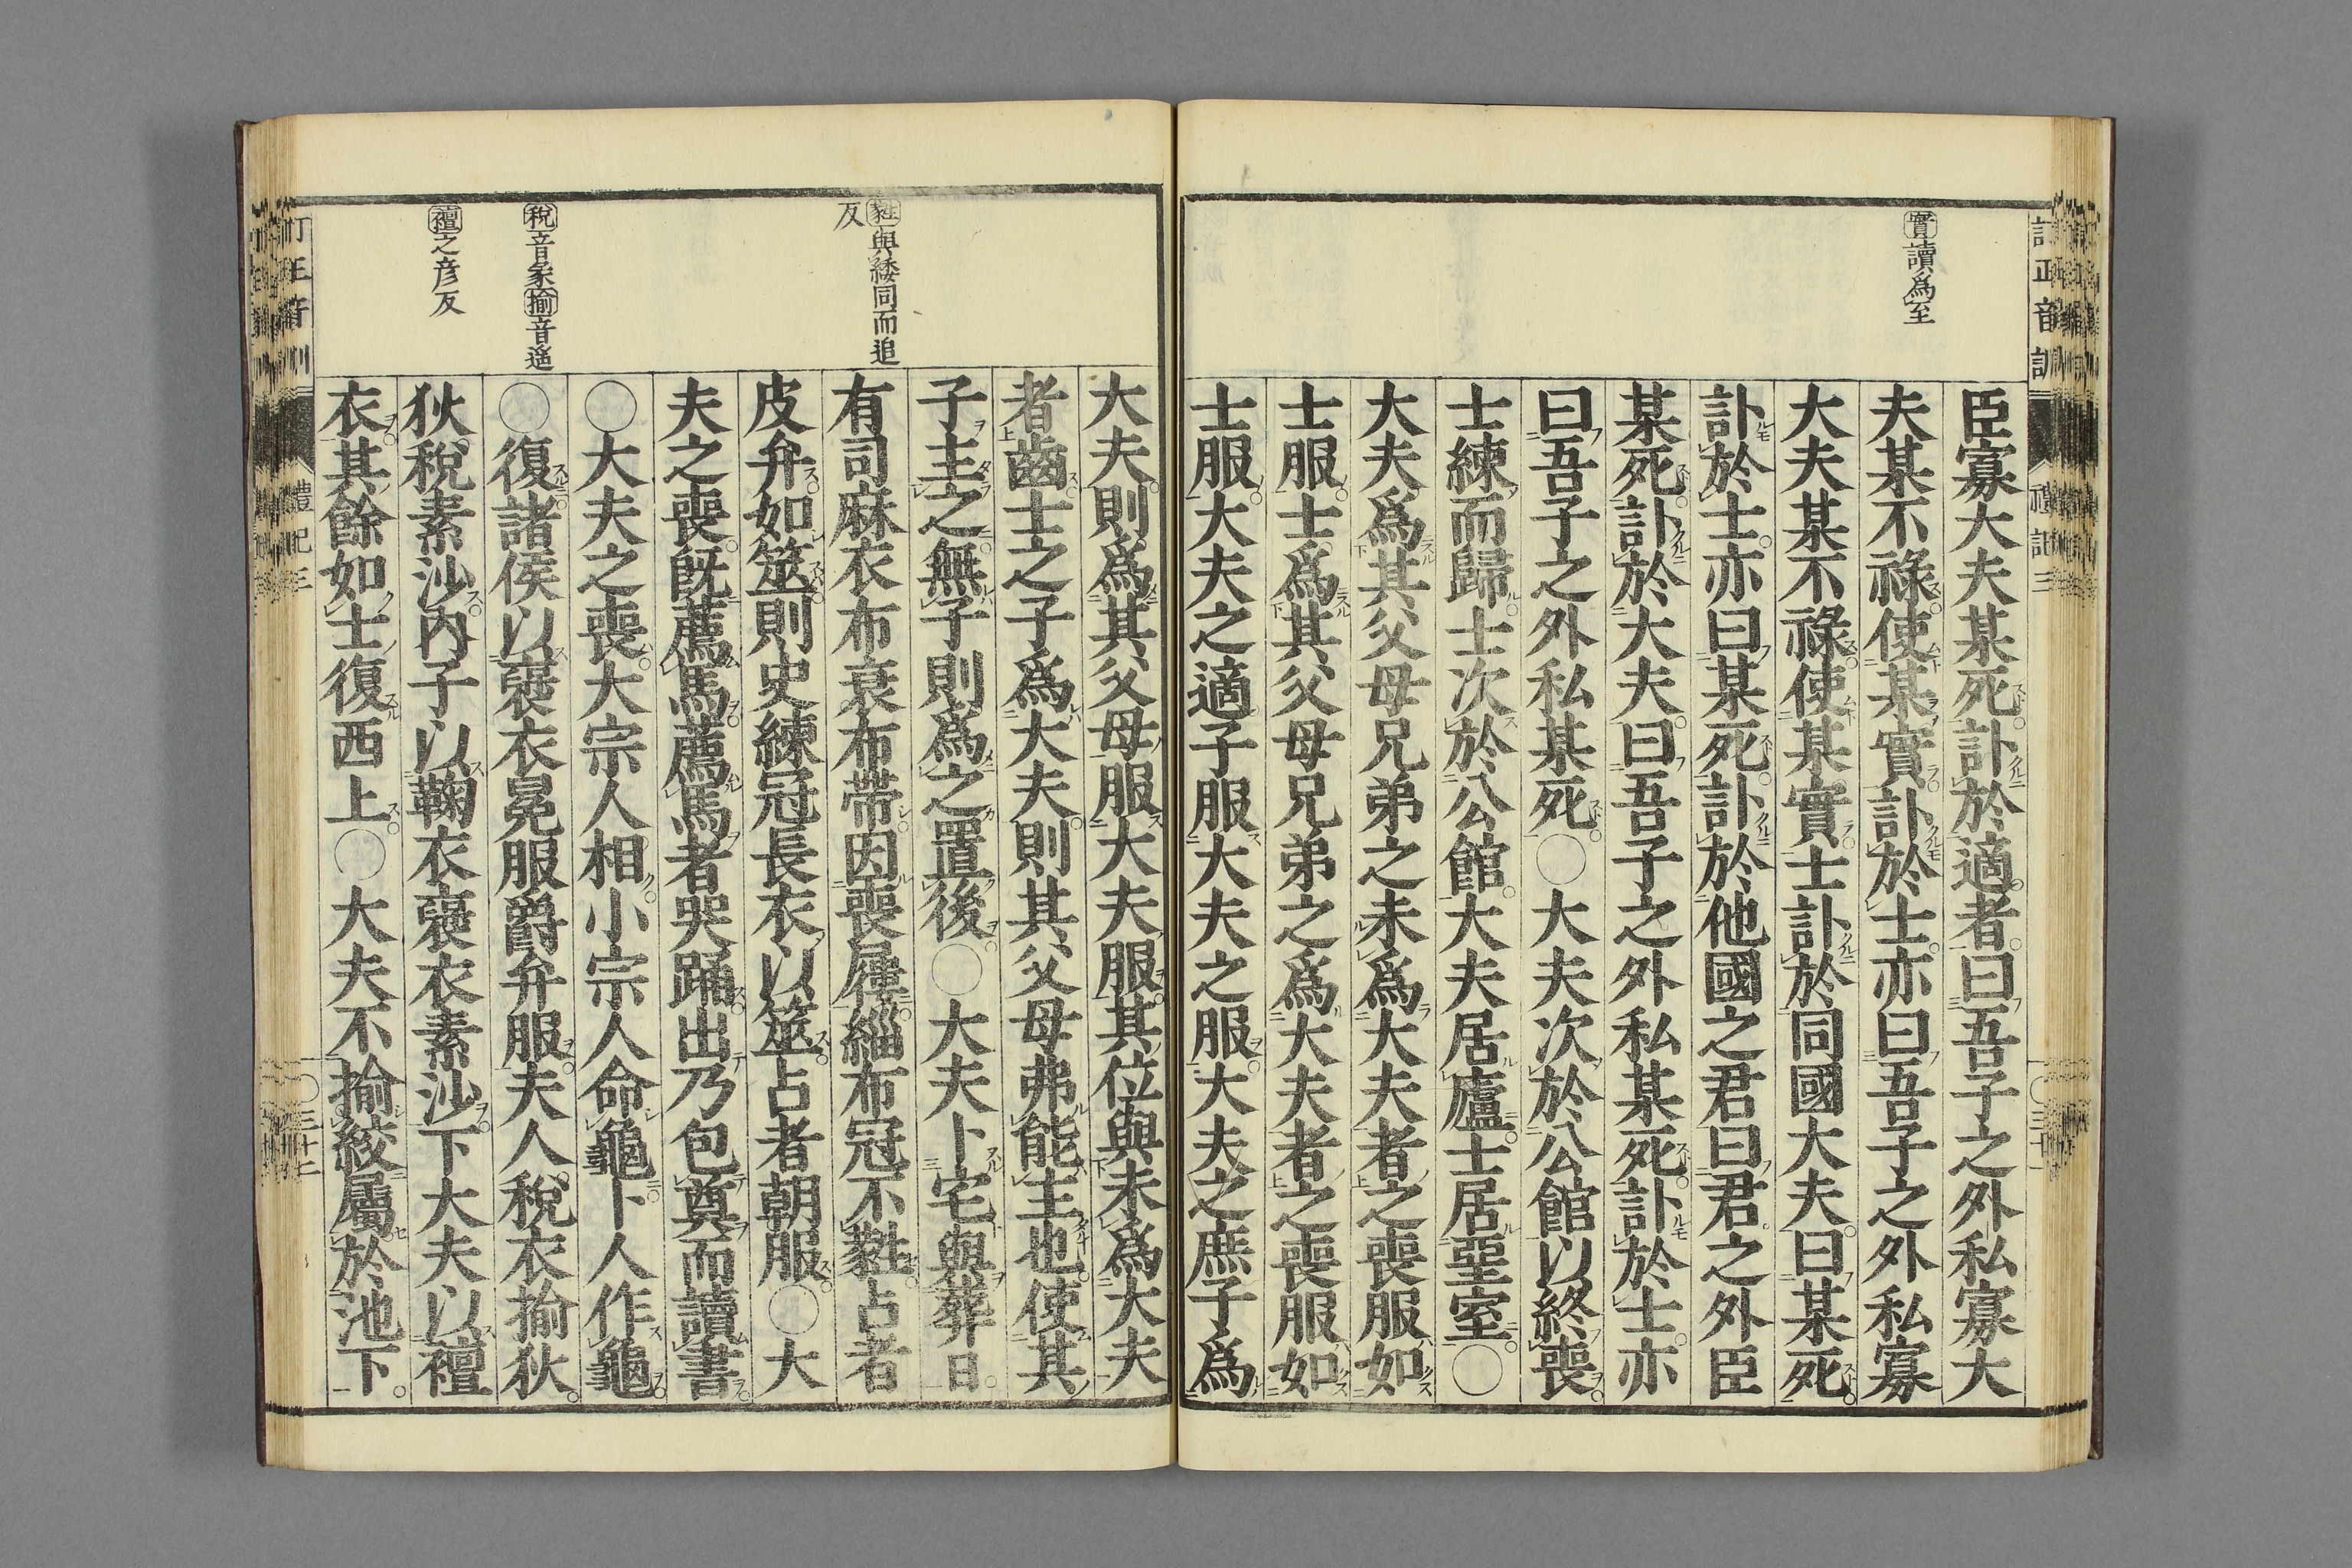 實讀爲至
臣寡大夫某死訃於適者曰吾子之外私寡大
夫某不祿使某實訃於士亦曰吾子之外私寡
大夫某不祿使某實士訃於同國大夫曰某死
訃於士亦曰某死訃於他國之君曰君之外臣
某死訃於大夫曰吾子之外私某死訃於士亦
曰吾子之外私某死〇大夫次於公館以終喪
士練而歸士次於公館大夫居廬士居堊室〇
大夫爲其父母兄弟之未爲大夫者之喪服如
士服士爲其父母兄弟之爲大夫者之喪服如
士服大夫之適子服大夫之服大夫之庶子爲
毵與緌同而追
反
稅音彖揄音遙
襢之彦反
大夫則爲其父母服大夫服其位與未爲大夫
者齒士之子爲大夫則其父母弗能主也使其
子主之無子則爲之置後〇大夫卜宅與葬日
有司麻衣布衰布帶因喪屨緇布冠不蕤占者
皮弁如筮則史練冠長衣以筮占者朝服〇大
夫之喪旣薦馬薦馬者哭踊出乃包奠而讀書
〇大夫之喪大宗人相小宗人命龜卜人作龜
〇復諸侯以襃衣冕服爵弁服夫人稅衣揄狄
狄稅素沙內子以鞠衣襃衣素沙下大夫以襢
衣其餘如士復西上〇大夫不揄絞屬於池下
訂正音訓
禮記三
三十二